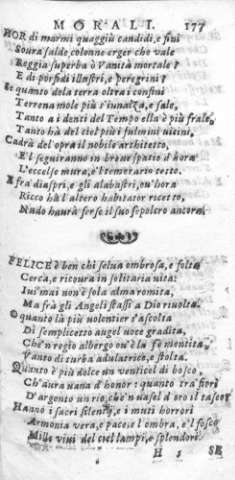 MORALI. 177
HOR di marmi quaggiù candidi, e fini
Soura salde colonne erger che vale
Reggia superba à Vanità mortale?
E di porfidi illustri, e peregrini?
Se quanto dela terra oltra i confini
Terrena mole più s'inualza, e sale,
Tanto a i denti del Tempo ella è più frale,
Tanto hà del ciel più i fulmini vicini,
Cadrà del opra il nobile architetto,
E'l seguiranno in breue spatio d'hora
L'eccelse mura, e'l temerario tetto.
E fra diaspri, e gli alabastri, ou'hora
Ricco hà l'altero habitator ricetto,
Nudo haurà forse il suo sepolcro ancora.
FELICE è ben chi selua ombrosa, e folta
Cerca, e ricoura in solitaria vita:
Iui mai non è sola alma romita,
Ma frà gli Angeli stassi a Dio riuolta.
O quanto là più volentier s'ascolta
Di semplicetto augel voce gradita,
Che'n regio albergo ou'è la fè mentita,
Vanto di turba adulatrice, e stolta.
Quanto è più dolce un venticel di bosco,
Ch'aura vana d'honor: quanto tra fiori
D'argento un rio, che'n vasel d'oro il tosco?
Hanno i sacri silentij, e i muti horrori
Armonia vera, e pace: e l'ombra, e'l fosco
Mille viui del ciel lampi, e splendori.
H 5 SE